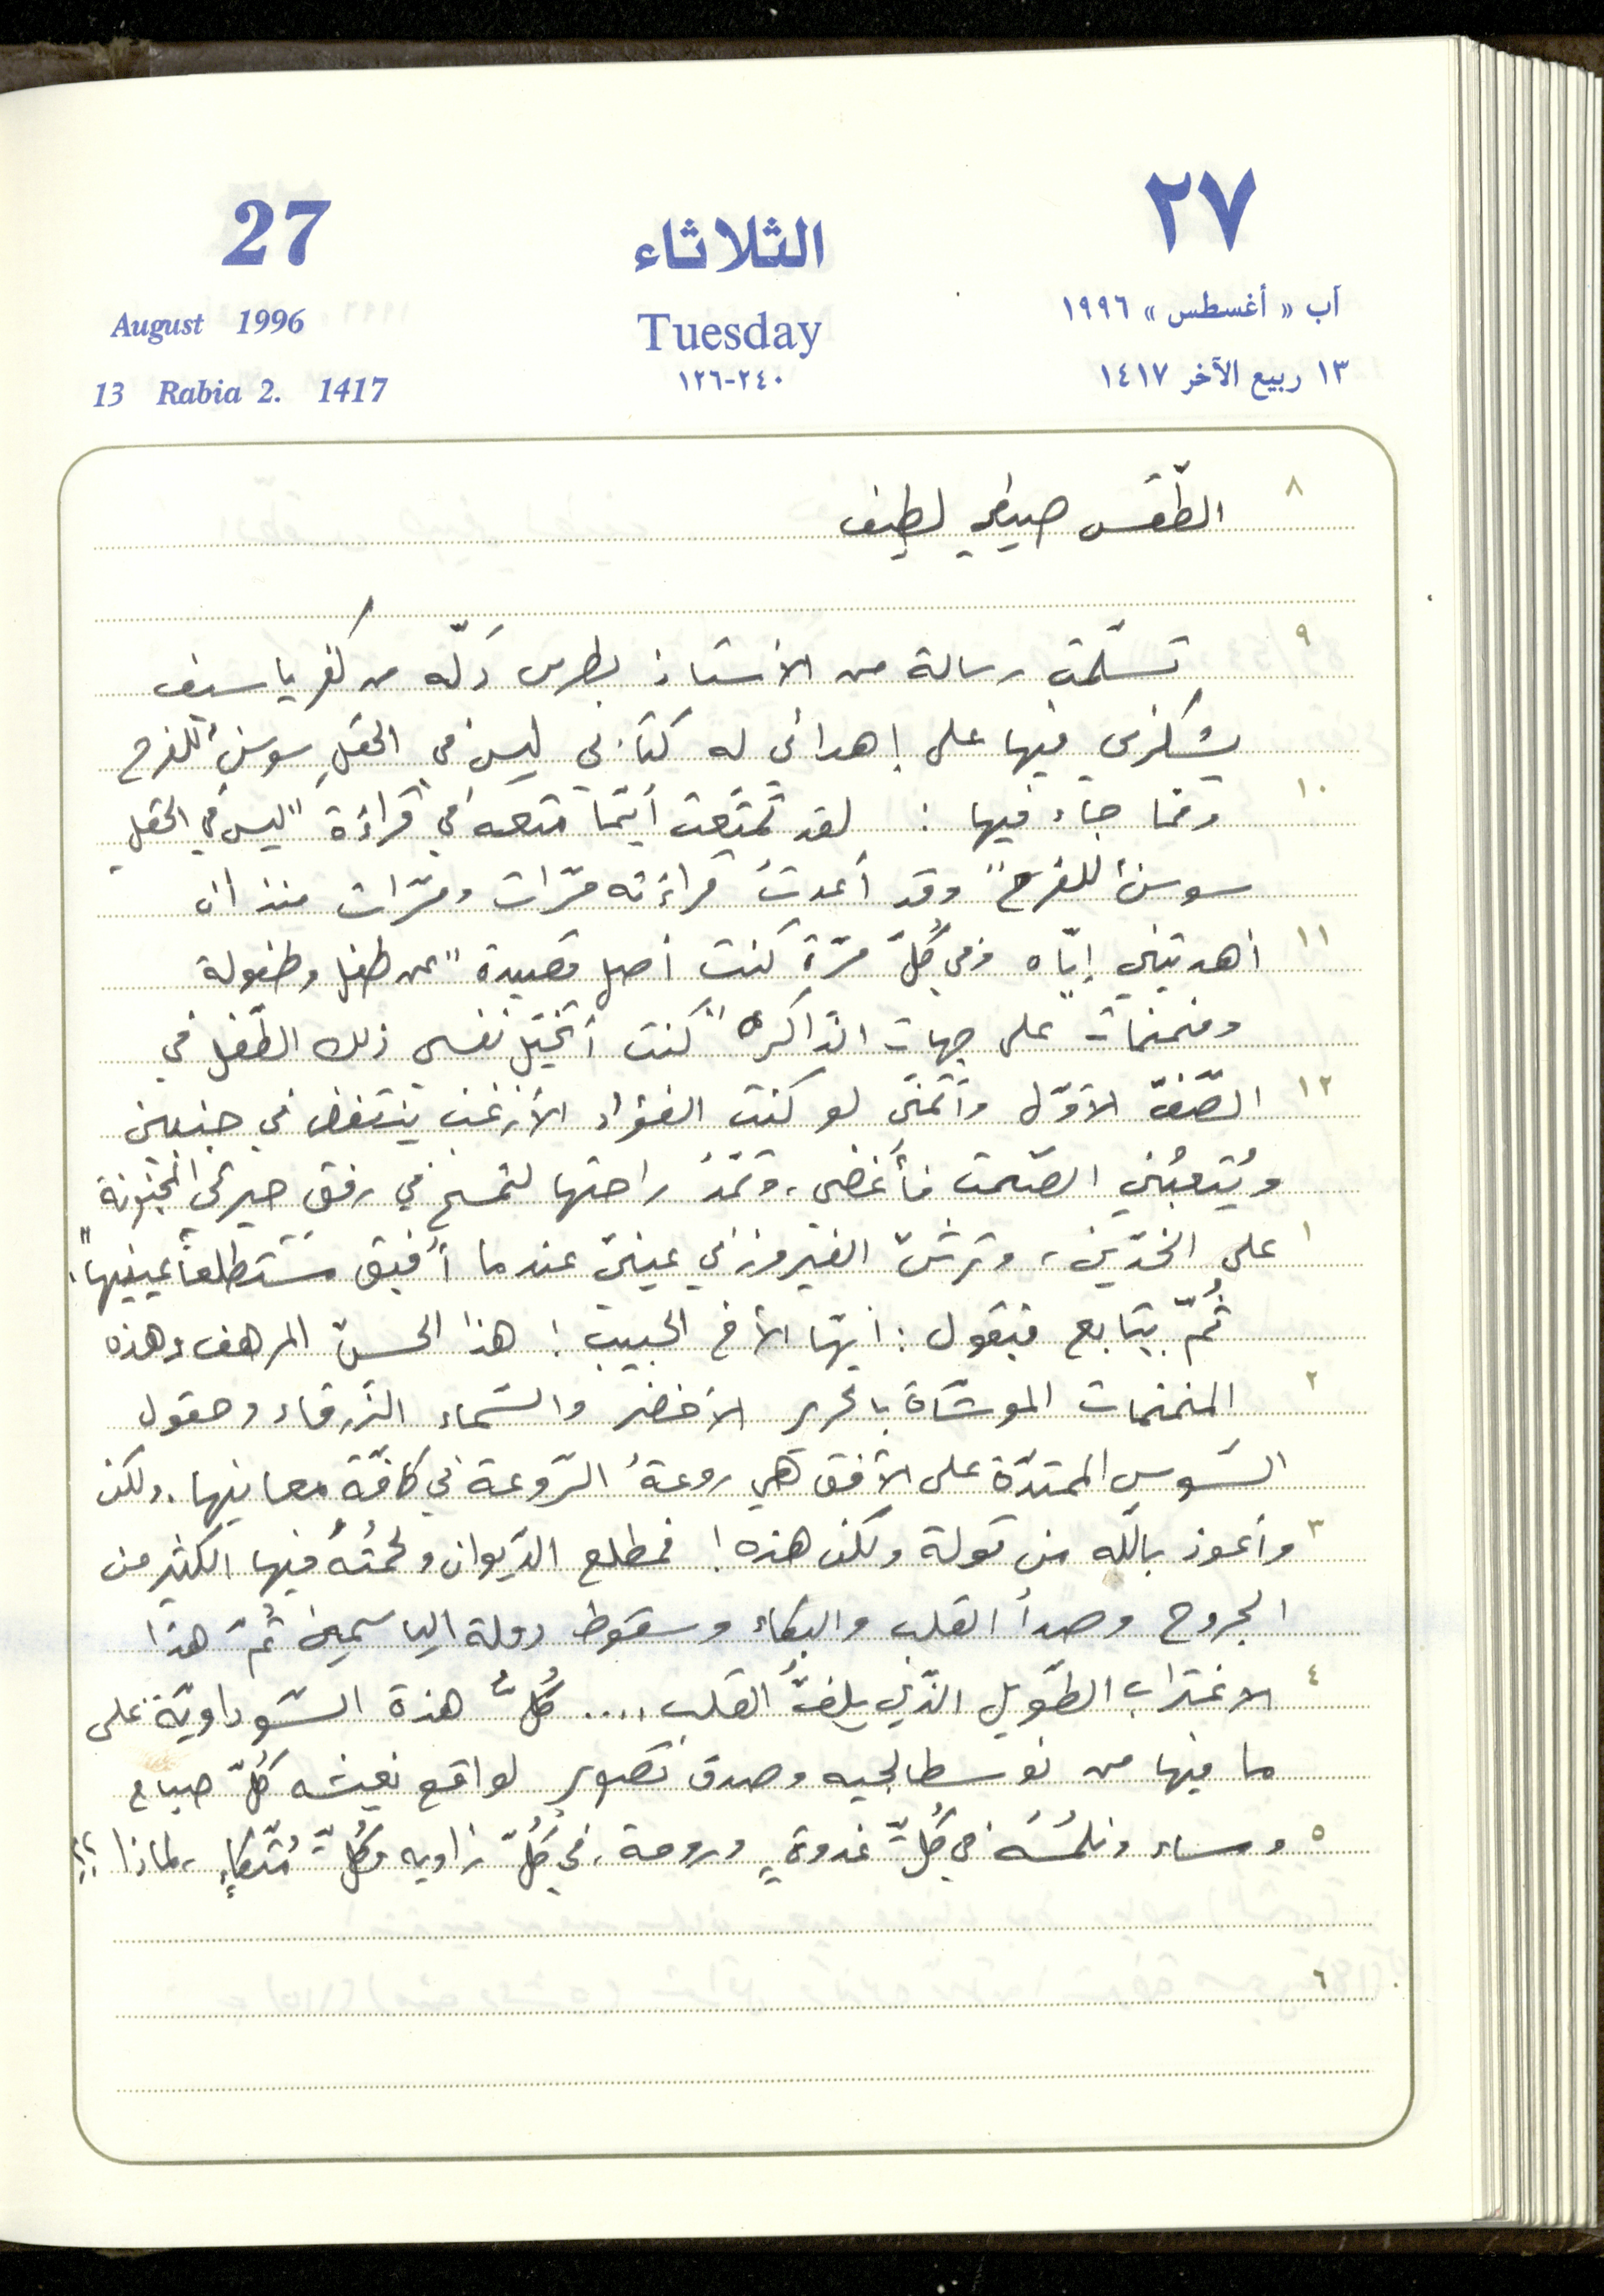 27
الثلاثاء
٢٧
August 1996
Tuesday
آب « أغسطس » ١٩٩٦
13 Rabia 2. 1417
٢٤٠-١٢٦
١٣ ربيع الآخر ١٤١٧
٨ الطّقس صيفي لطيف
٩ تسلّمت رسالة من الأستاذ بطرس دَلّه من كفر ياسيف
يشكرني فيها على إهدائي له كتابي ليس في الحقلِ سوسنٌ للفرح
١٠ وممّا جاء فيها : لقد تمتّعت أيّما متعه في قراءة "ليس في الحقلِ
سوسنٌ للفرح" وقد أعدتُ قراءته مرّات ومرّات منذ أن
١١ أهديتني إيّاه وفي كُلّ مرّة كنت أصل قصيدة "عن طفل وطفولة
ومنمنمات على جهات الذاكرة" كنت أتخيّل نفسي ذلك الطّفل في
١٢ الصّفّ الأوّل وأتمنّى لو كنت الفؤاد الأزغب ينتفض في جنبيني
ويُتعبُني الصّمت فأغضي، وتمّدُ راحتها لتمسح في رفق حيرتي المجنونة
١ على الخدّين، وترشّ الفيروز في عينيّ عندما أُفيق مستطلعاً عينيها".
ثُمّ يتابع فيقول : أيّها الأخ الحبيب : هذا الحسّ المرهف وهذه
٢ المنمنمات الموشّاة بالحرير الأخضر والسّماء الزّرقاء وحقول
السَّوسن الممتدّة على الأفق هي روعةُ الرّوعة في كافّة معانيها. ولكن
٣ وأعوذ باللّه من قولة ولكن هذه! فمطلع الدّيوان ولُحمتُهُ فيها الكثير من
الجروح وصدأ القلب والبكاء وسقوط دولة الياسمين ثُمّ هذا
٤ الاغتراب الطّويل الذّي يلفُّ القلب .... كُلُّ هذة السّوداويّة على
ما فيها من نوسطالجيه وصدق تصوير لواقع نعيشه كُلّ صباح
٥ ومساء ونلمُسُه في كُلّ غدوةٍ وروحة، في كُلّ زاويه وكُلّ مُتّكإٍ، لماذا ؟!
٦